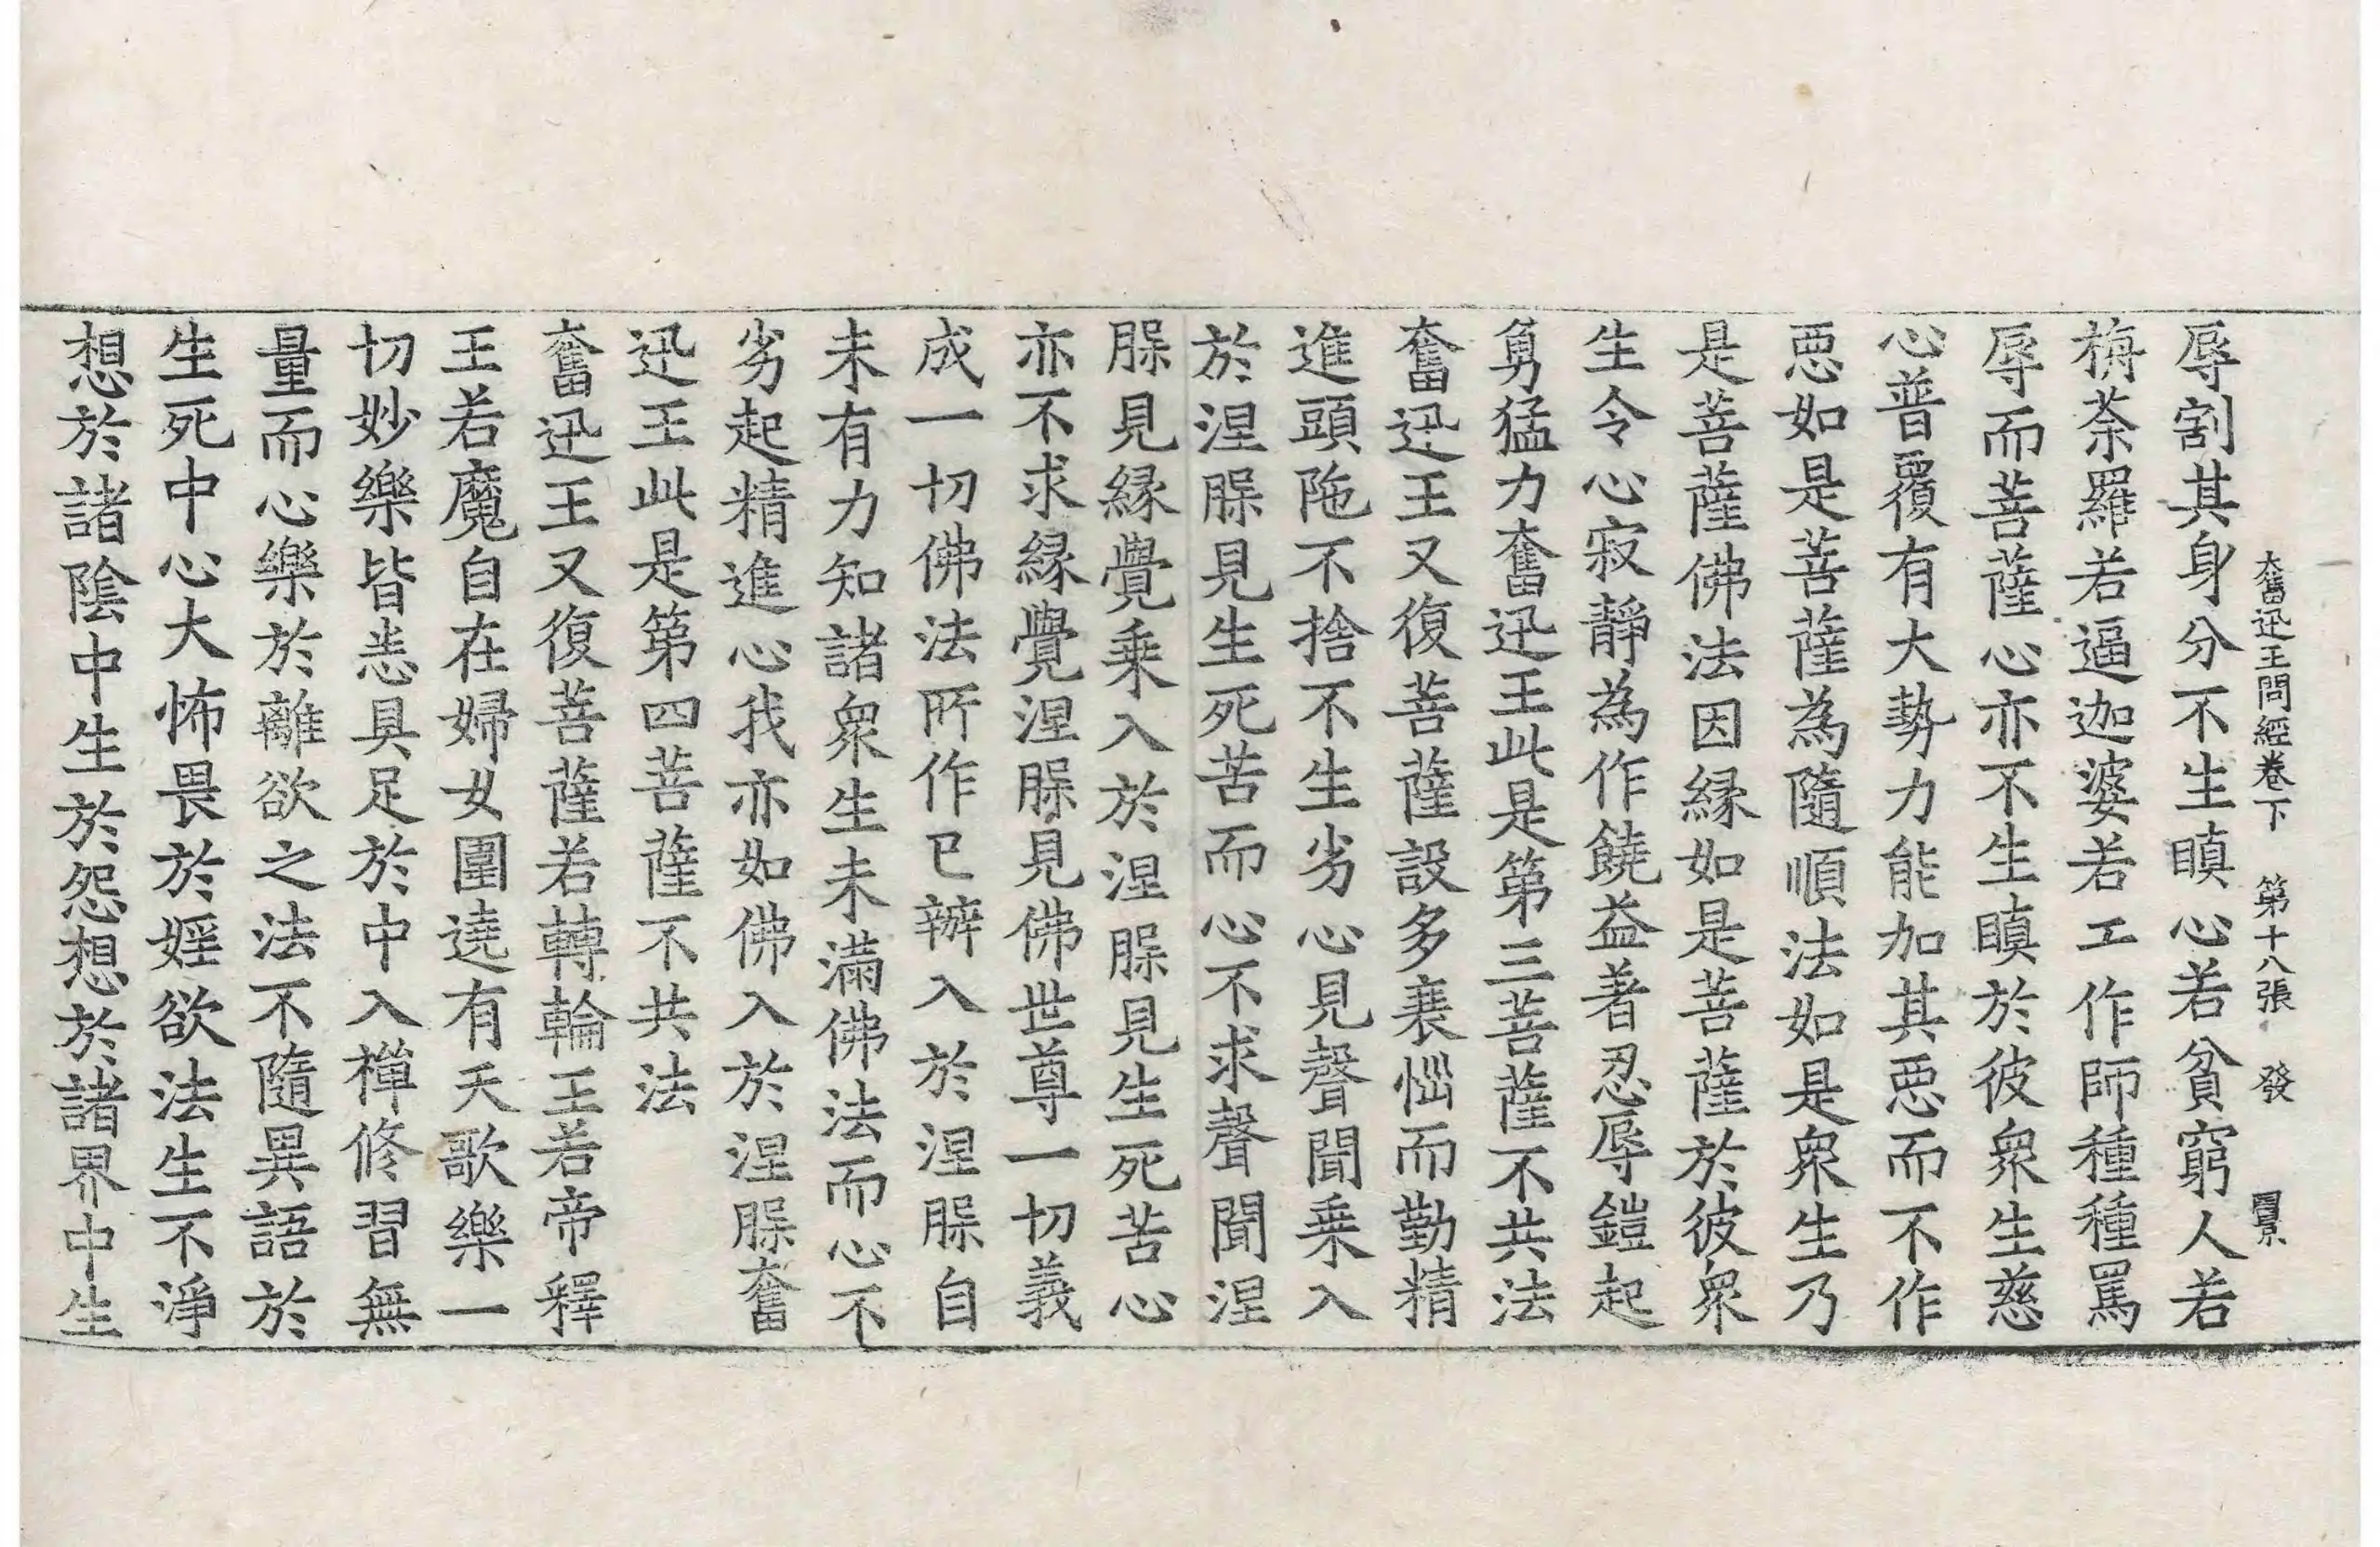 奮迅王問經卷下　第十八張　發
辱割其身分不生瞋心若貧窮人若
栴荼羅若逼迦婆若工作師種種罵
辱而菩薩心亦不生瞋於彼衆生慈
心普覆有大勢力能加其悪而不作
悪如是菩薩為隨順法如是衆生乃
是菩薩佛法因縁如是菩薩於彼衆
生令心寂靜為作饒益著忍辱鎧起
勇猛力奮迅王此是第三菩薩不共法
奮迅王又復菩薩設多衰惱而勤精
進頭陁不捨不生劣心見聲聞乗入
於涅槃見生死苦而心不求聲聞涅
槃見縁覺乗入於涅槃見生死苦心
亦不求縁覺涅槃見佛世尊一切義
成一切佛法所作已辦入於涅槃自
未有力知諸衆生未滿佛法而心不
劣起精進心我亦如佛入於涅槃奮
迅王此是第四菩薩不共法
奮迅王又復菩薩若轉輪王若帝釋
王若魔自在婦女圍遶有天歌樂一
切妙樂皆悉具足於中入禪修習無
量而心樂於離欲之法不隨異語於
生死中心大怖畏於婬欲法生不淨
想於諸陰中生於怨想於諸界中生